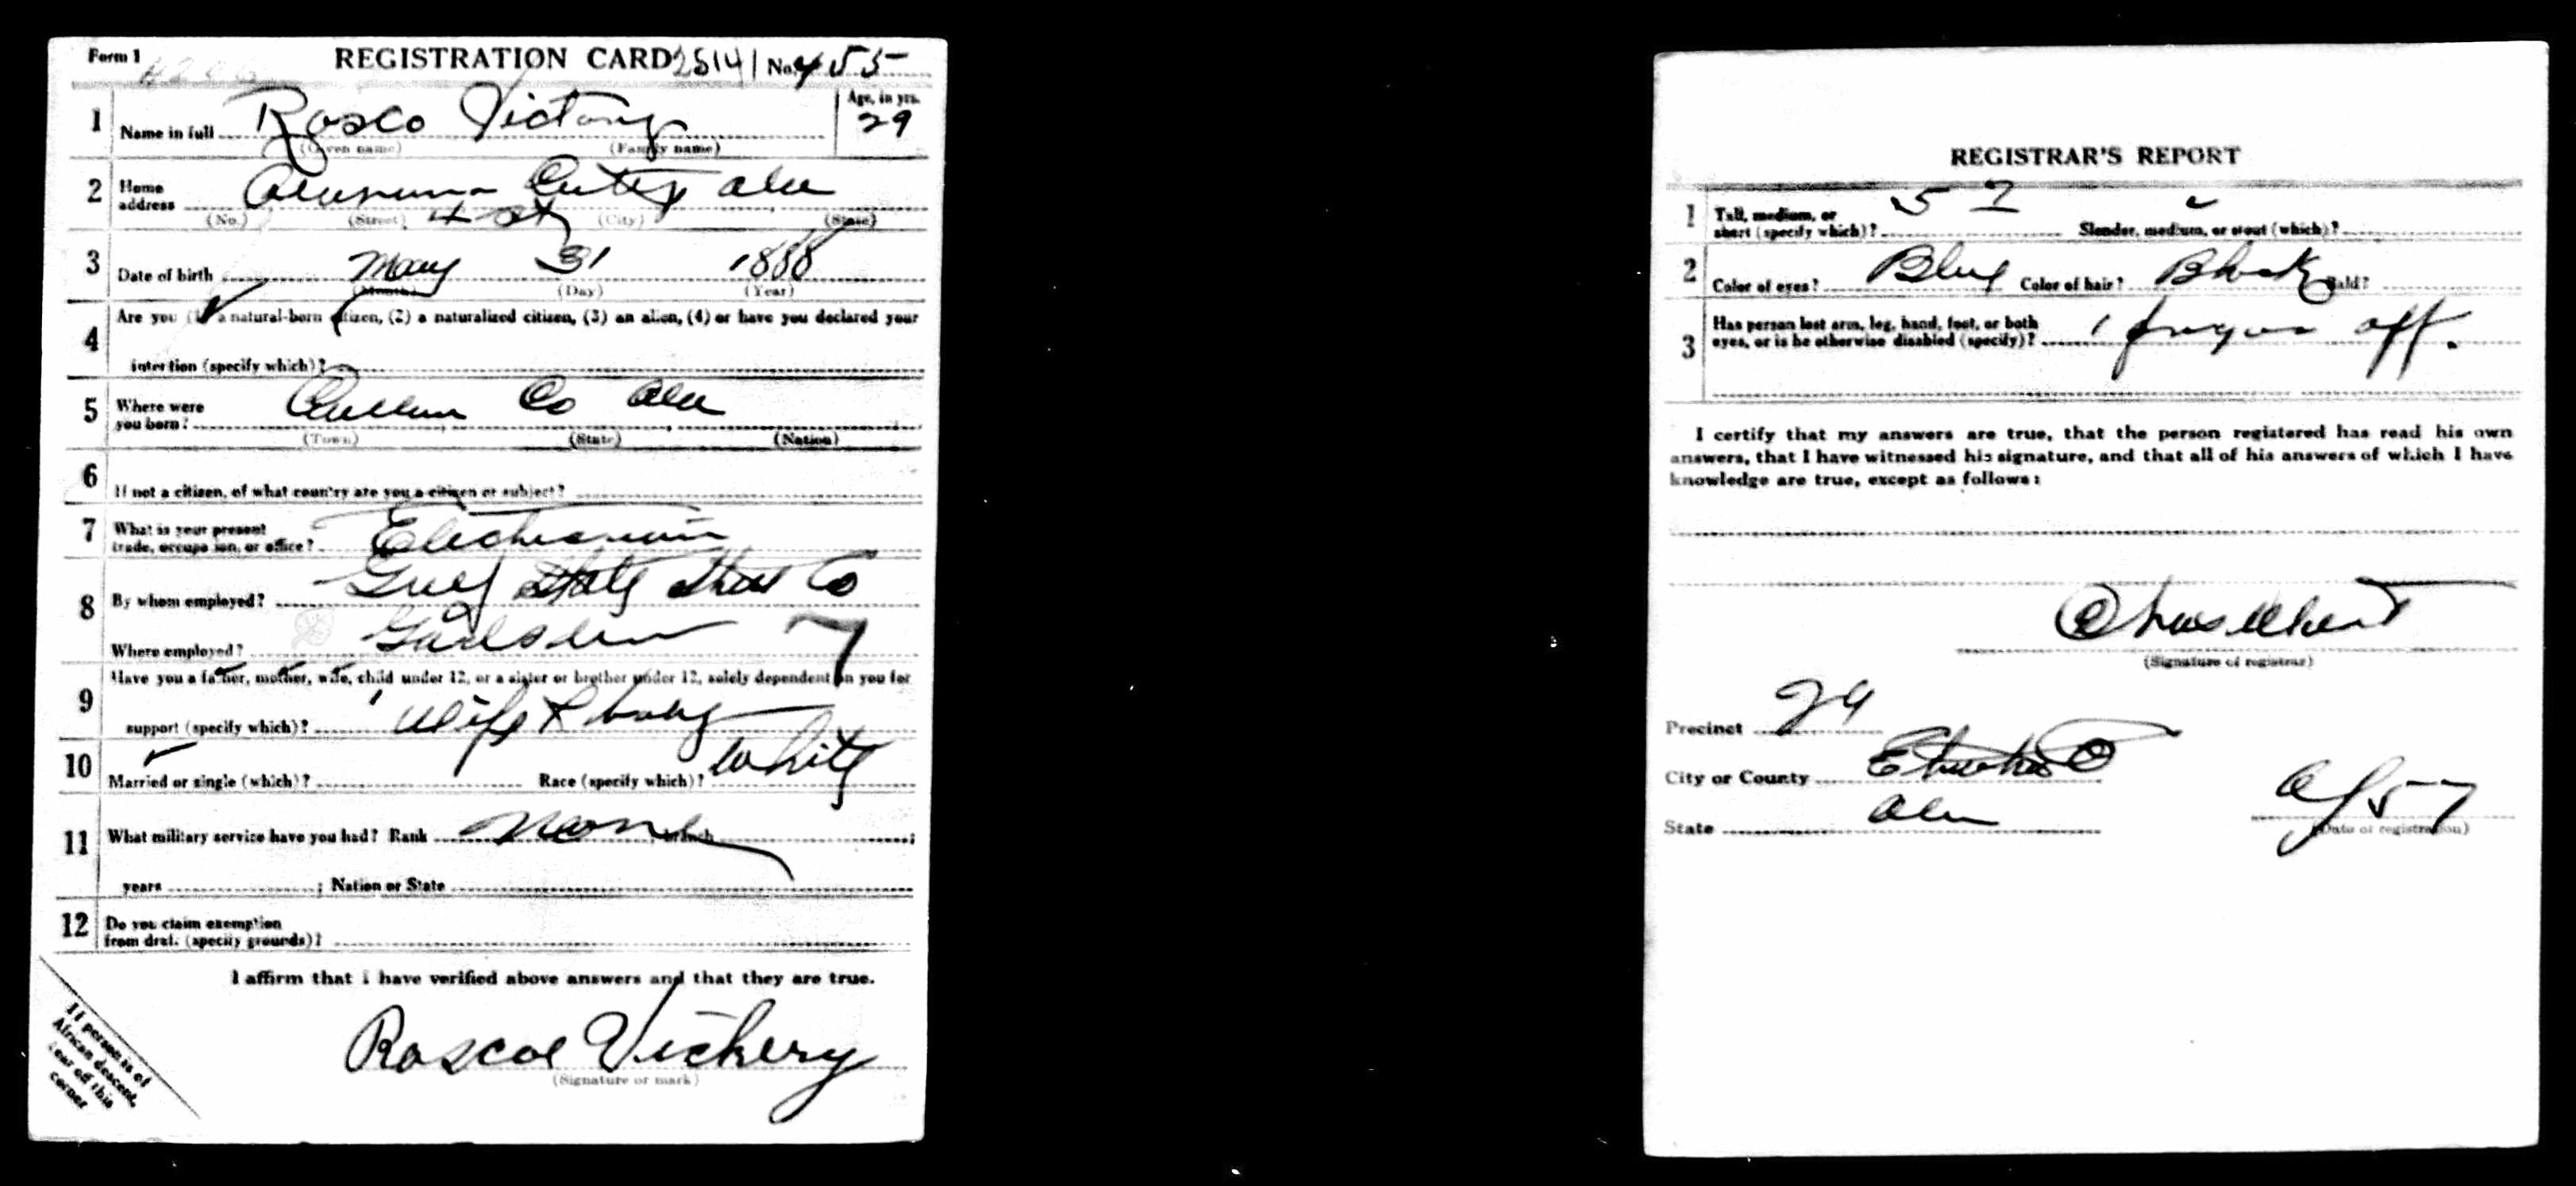 Form 1 REGISTRATION CARD 2514 No. 455
1 Name in full Rosco Victory Age, in yrs. 29
(Given name) (Family name)
2 Home address City Ala
(No.) (Street) 4 St (City) (State)
3 Date of birth May 31 1888
(Month) (Day) (Year)
4 Are you (1) a natural-born citizen, (2) a naturalized citizen, (3) an alien, (4) or have you declared your
intention (specify which)?
5 Where were you born? Cullman Co Ala
(Town) (State) (Nation)
6 If not a citizen, of what country are you a citizen or subject?
7 What is your present trade, occupation, or office? Electrician
8 By whom employed? Gulf State Steel Co
Where employed? Gadsden 7
9 Have you a father, mother, wife, child under 12, or a sister or brother under 12, solely dependent on you for
support (specify which)? Wife & baby
10 Married or single (which)? Race (specify which)? White
11 What military service have you had? Rank None ; branch ;
years ; Nation or State
12 Do you claim exemption
from draft (specify grounds)?
I affirm that I have verified above answers and that they are true.
Roscoe Vickery
(Signature or mark)
If person is of
African descent,
tear off this
corner
REGISTRAR'S REPORT
1 Tall, medium, or short (specify which)? 5 7 Slender, medium, or stout (which)?
2 Color of eyes? Blue Color of hair? Black Bald?
3 Has person lost arm, leg, hand, foot, or both
eyes, or is he otherwise disabled (specify)? 1 finger off.
I certify that my answers are true, that the person registered has read his own
answers, that I have witnessed his signature, and that all of his answers of which I have
knowledge are true, except as follows:
(Signature of registrar)
Precinct 29
City or County Etowah Co
State Ala
(Date of registration)